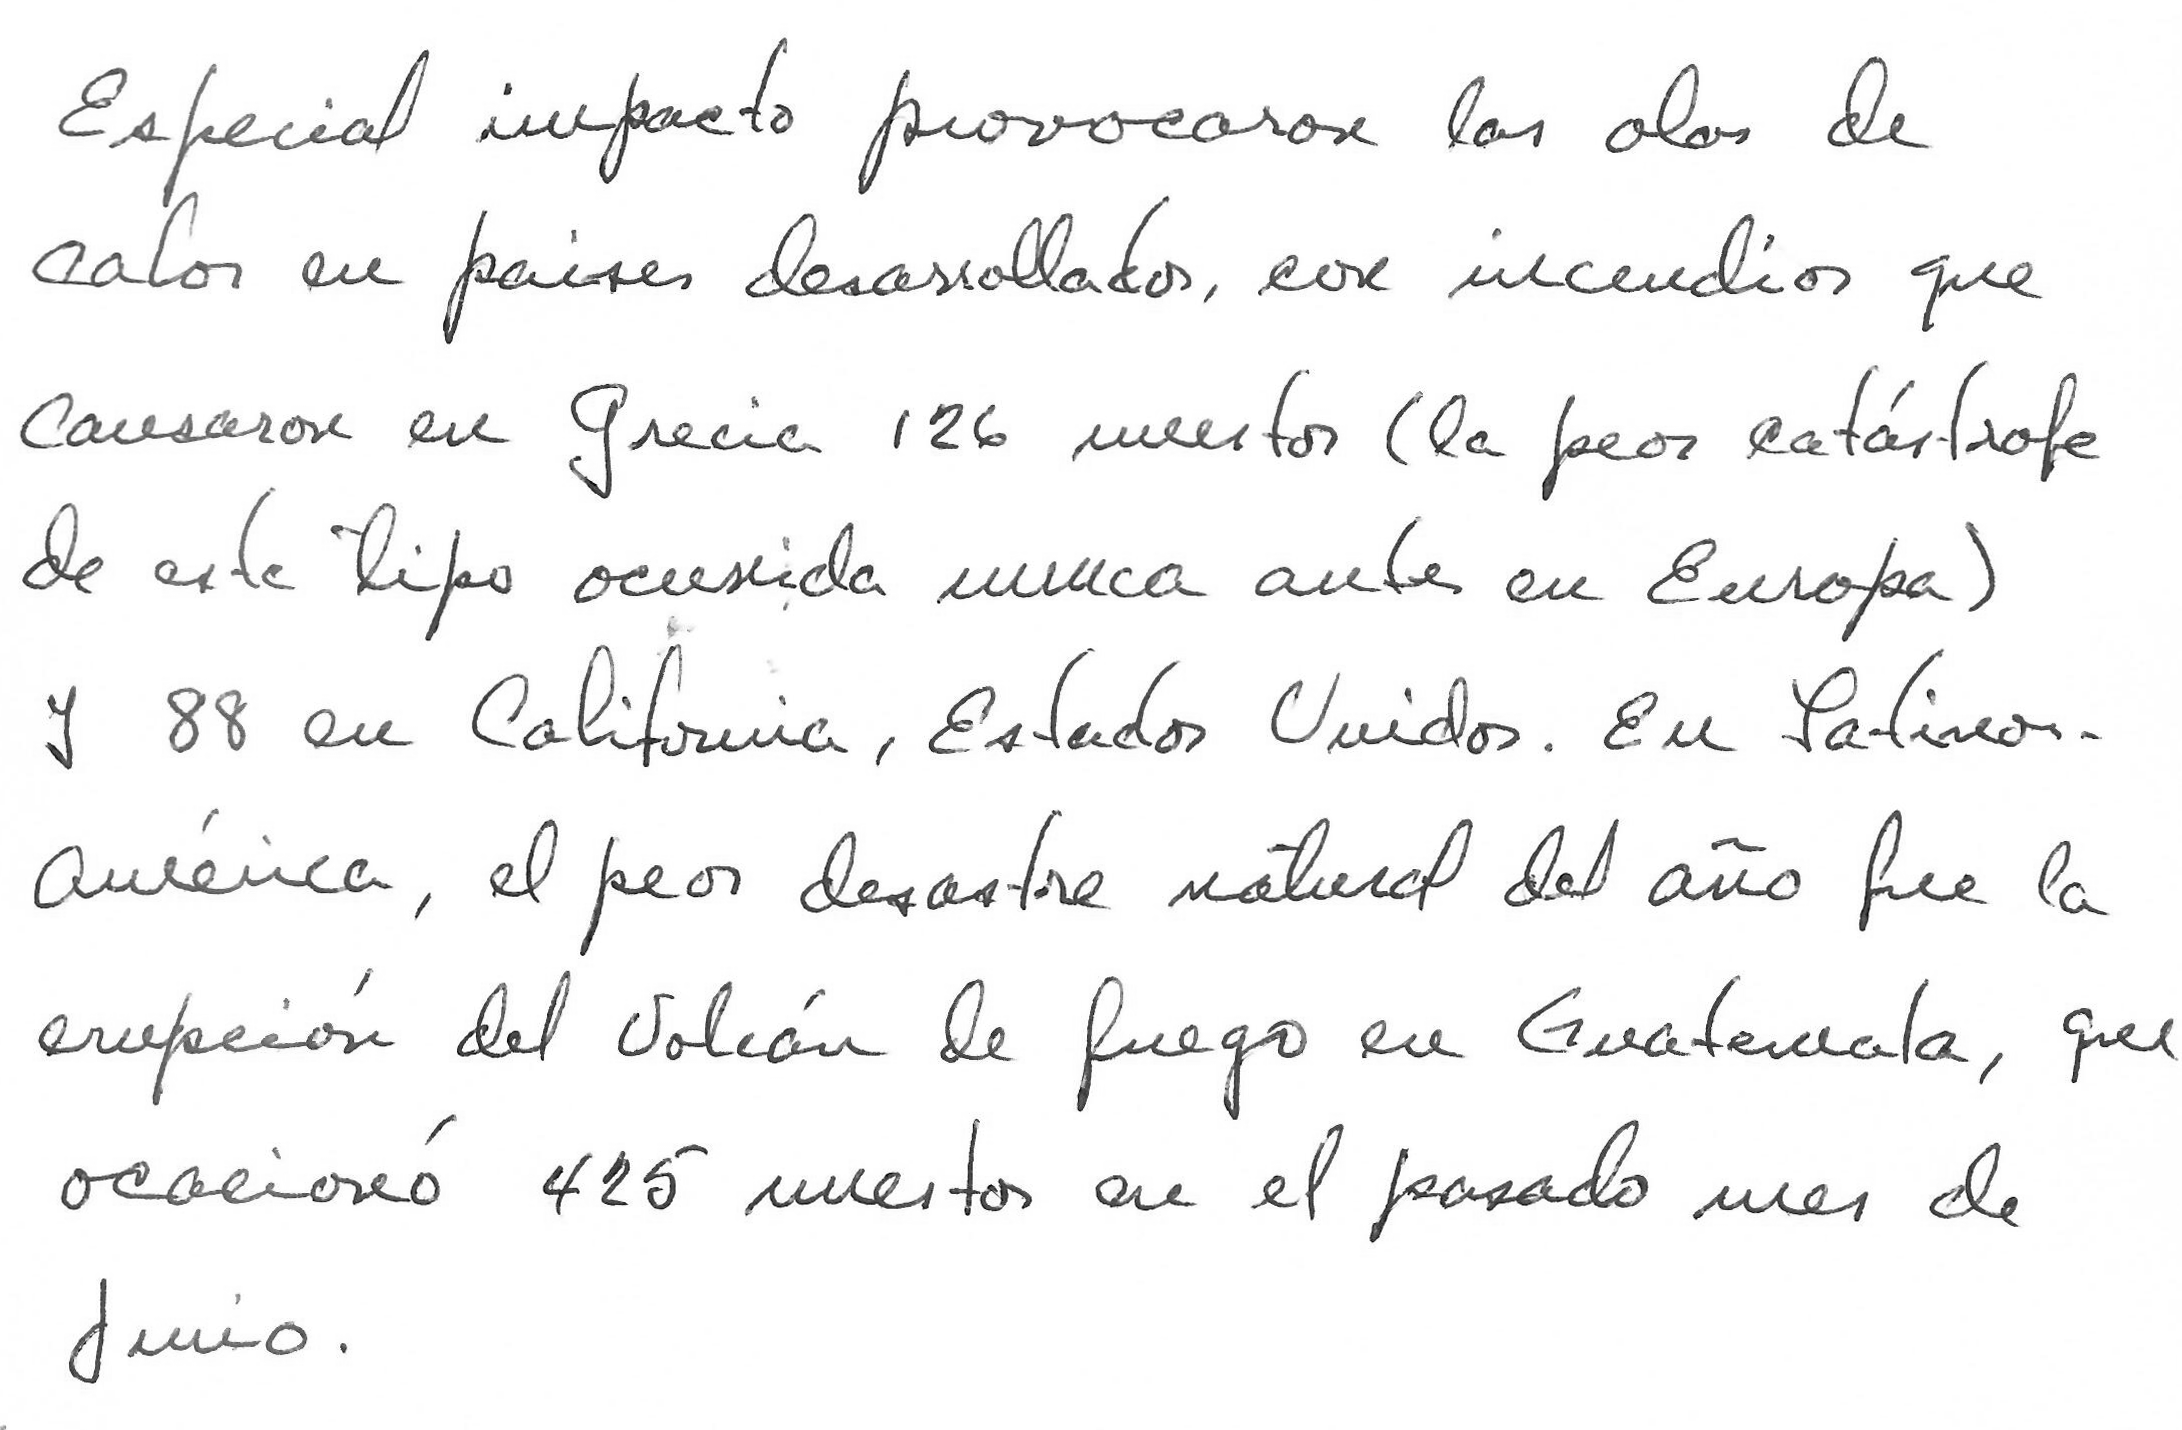 Especial impacto provocaron las olas de
calor en paises desarrollados, con incendios que
causaron en Grecia 126 muertos (la peor catástrofe
de este tipo ocurrida nunca antes en Europa)
y 88 en California, Estados Unidos. En Latinoa-
américa, el peor desastre natural del año fue la
erupción del Volcán de fuego en Guatemala, que
ocacionó 425 muertos en el pasado mes de
Junio.